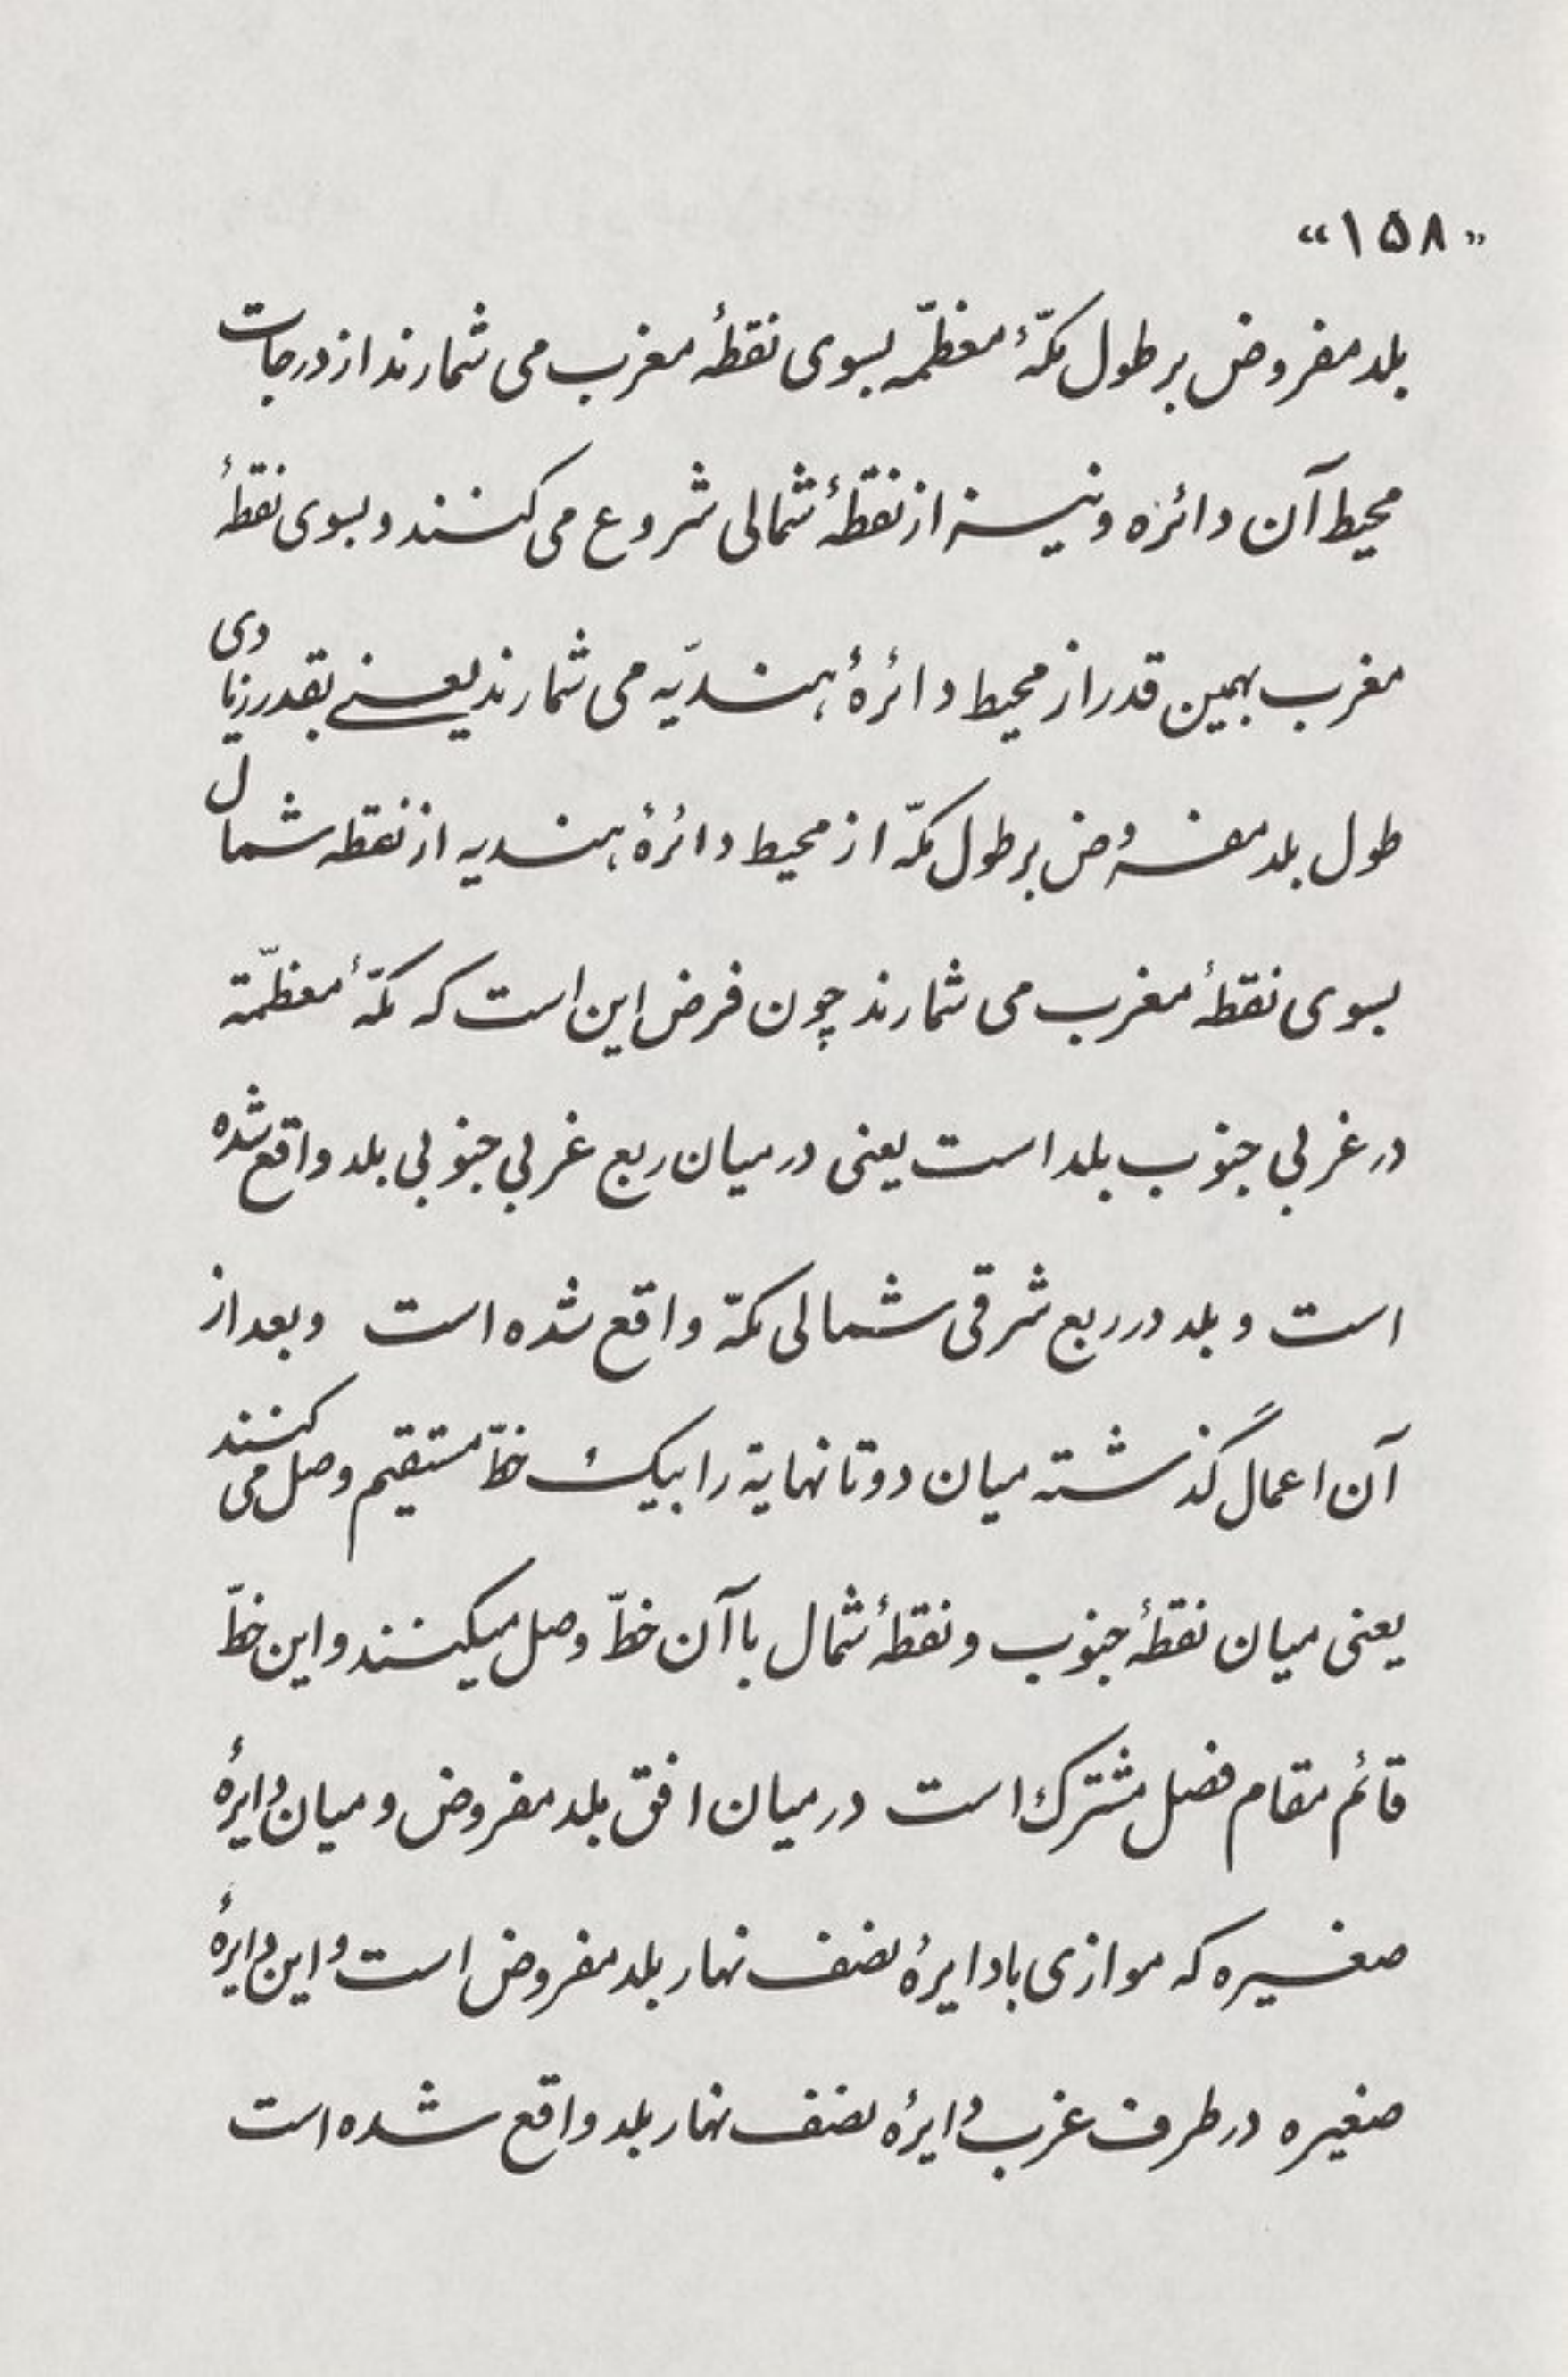 «۱۵۸»
بلد مفروض بر طول مکّهٔ معظمّه بسوی نقطهٔ مغرب می شمارند از درجات
محیط آن دائره و نیز از نقطهٔ شمالی شروع می کنند و بسوی نقطهٔ
مغرب بهمین قدر از محیط دائرهٔ هندیّه می شمارند یعنے بقدر زیادی
طول بلد مفروض بر طول مکّه از محیط دائرهٔ هندیه از نقطه شمال
بسوی نقطهٔ مغرب می شمارند چون فرض این است که مکّهٔ معظمّة
در غربی جنوب بلد است یعنی در میان ربع غربی جنوبی بلد واقع شده
است و بلد در ربع شرقی شمالی مکّه واقع شده است و بعد از
آن اعمال گذشته میان دو تا نهایة را بیک خطّ مستقیم وصل می کنند
یعنی میان نقطهٔ جنوب و نقطهٔ شمال با آن خطّ وصل میکنند و این خطّ
قائم مقام فصل مشترک است در میان افق بلد مفروض و میان دایرهٔ
صغیره که موازی با دایرهٔ نصف نهار بلد مفروض است و این دایرهٔ
صغیره در طرف غرب دایرهٔ نصف نهار بلد واقع شده است